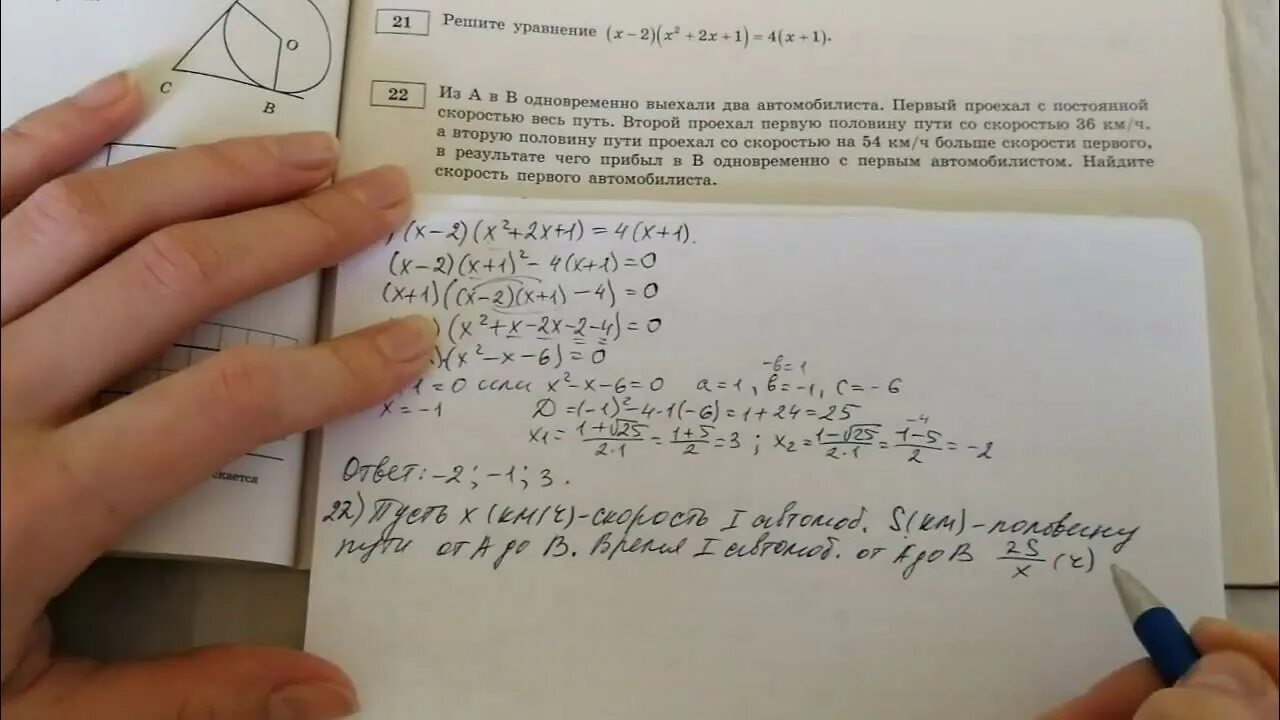 O
C
B
21 Решите уравнение (x − 2)(x² + 2x + 1) = 4(x + 1).
22 Из А в В одновременно выехали два автомобилиста. Первый проехал с постоянной
скоростью весь путь. Второй проехал первую половину пути со скоростью 36 км/ч,
а вторую половину пути проехал со скоростью на 54 км/ч больше скорости первого,
в результате чего прибыл в В одновременно с первым автомобилистом. Найдите
скорость первого автомобилиста.
(x−2)(x²+2x+1)=4(x+1).
(x−2)(x+1)²−4(x+1)=0
(x+1)((x−2)(x+1)−4)=0
)(x²+x−2x−2−4)=0
)(x²−x−6)=0
1=0 или x²−x−6=0 a=1, в=−1, c=−6
−в=1
x=−1 D=(−1)²−4·1(−6)=1+24=25
x1=(1+√25)/(2·1)=(1+5)/2=3; x2=(1−√25)/(2·1)=(1−5)/2=−2
−4
Ответ: −2; −1; 3.
22) Пусть x (км/ч)-скорость I автомоб. S(км)-половину
пути от А до В. Время I автомоб. от А до В 2S/x (ч)